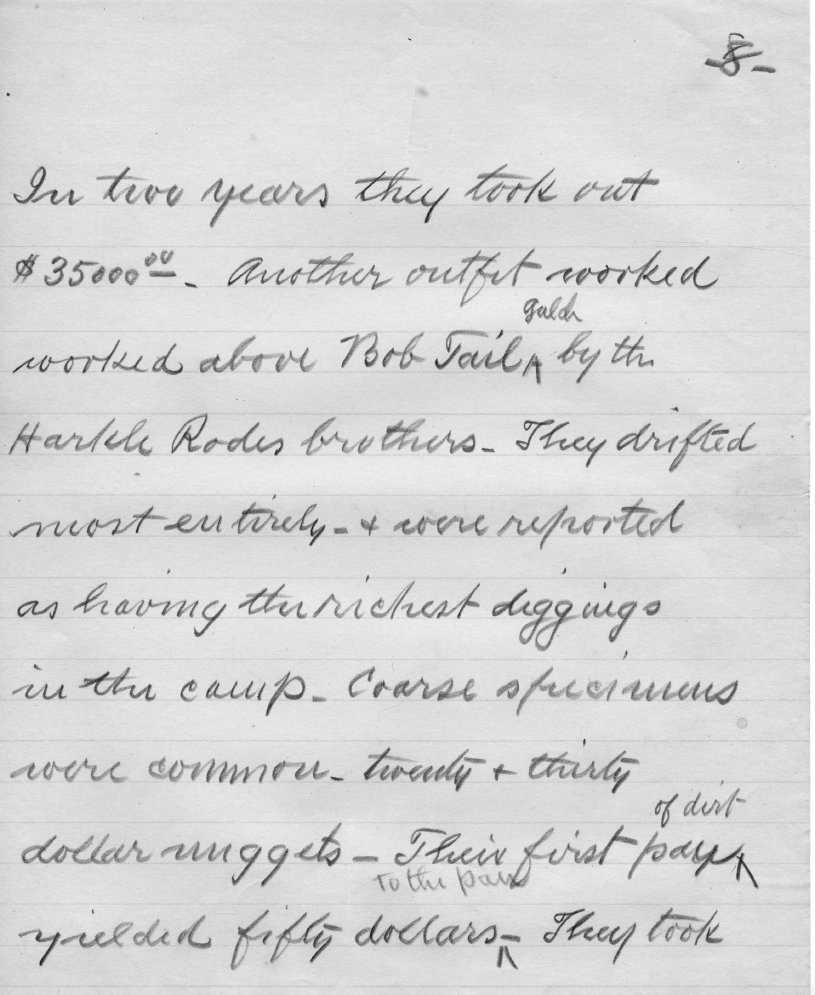 -8-
In two years they took out
$35000.00 - Another outfit worked
gulch
worked above Bob Tail ^ by the
Harkle Rodes brothers - They drifted
most entirely - + were reported
as having the richest diggings
in the camp - Coarse specimens
were common - twenty + thirty
of dirt
dollar nuggets - Their first pay ^
to the pan
yielded fifty dollars ^ - They took